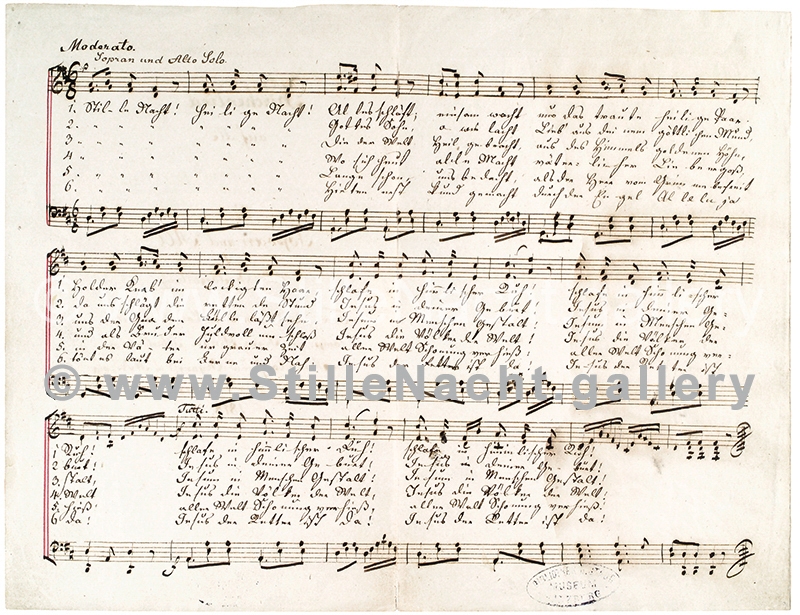 Moderato.
Sopran und Alto Solo.
1. Stil-le Nacht! Hei-li-ge Nacht! Al-les schläft; einsam wacht nur das traute heilige Paar.
2. " " " " " " Gottes Sohn, o wie lacht Lieb' aus deinem göttlichen Mund,
3. " " " " " " Die der Welt Heil gebracht, aus des Himmels goldenen Höhn,
4. " " " " " " Wo sich heut alle Macht väterlicher Liebe ergoß,
5. " " " " " " Lange schon, uns bedacht, als der Herr vom Grimme befreit
6. " " " " " " Hirten erst kund gemacht durch der Engel Al le lu ja
1. Holder Knab' im lockigten Haar, schlafe in himmlischer Ruh! schlafe in himmlischer
2. da uns schlägt die rettende Stund. Jesus in deiner Geburt! Jesus in deiner Ge-
3. uns der Gnaden Fülle läßt sehn, Jesum in Menschen Gestalt! Jesum in Menschen Ge-
4. und als Bruder huldvoll umschloß Jesus die Völker der Welt! Jesus die Völker der
5. in der Väter urgrauer Zeit aller Welt Schonung verhieß! aller Welt Schonung ver-
6. tönt es laut bei Ferne und Nah: Jesus der Retter ist Jesus der Retter ist
© www.StilleNacht.gallery
Tutti.
1 Ruh! schlafe in himmlischer Ruh! schlafe in himmlischer Ruh!
2 burt! Jesus in deiner Ge-burt! Jesus in deiner Ge-burt!
3. stalt! Jesum in Menschen Gestalt! Jesum in Menschen Gestalt!
4. Welt! Jesus die Völker der Welt! Jesus die Völker der Welt!
5. hieß! aller Welt Schonung verhieß! aller Welt Schonung verhieß!
6. da! Jesus der Retter ist da! Jesus der Retter ist da!
MUSEUM